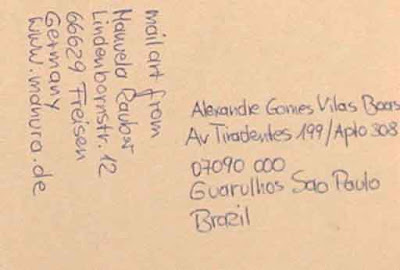 mail art from
Manuela Raubst
Lindenbornstr. 12
66629 Freisen
Germany
www.manura.de
Alexandre Gomes Vilas Boas
Av Tiradentes 199/Apto 308
07090 000
Guarulhos Sao Paulo
Brazil